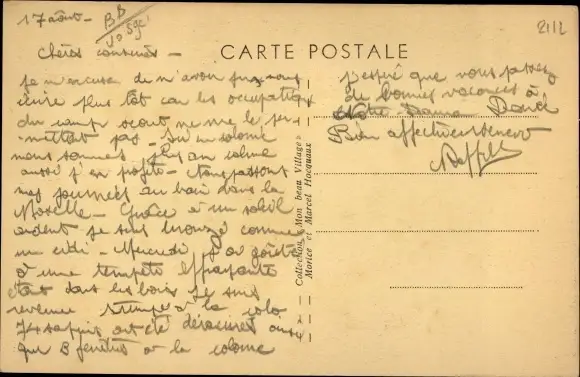 17 août -
BB
10.59c
2112
CARTE POSTALE
Chères cousines -
Je m'excuse de n'avoir pu vous
écrire plus tôt car les occupations
du camp scout ne me le per-
mettait pas - Ici en colonie
nous sommes plus au calme
aussi j'en profite - Nous passons
nos journées au bain dans la
Moselle - Grâce à un soleil
ardent je suis bronzé comme
un - Mercredi j'ai goûté
à une tempête effrayante
étais dans les bois je suis
revenue trempée à la colo
74 sapins ont été déracinés aussi
que 3 fenêtres à la colonie
j'espère que vous passez
de bonnes vacances à
Notre Dame
Bien affectueusement
Collection « Mon beau Village »
Morice et Marcel Hocquaux